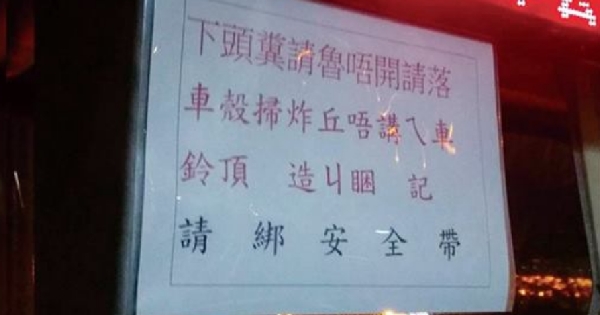 下頭糞請魯唔開請落
車殼掃炸丘唔講乁車
鈴頂 造丩睏 記
請綁安全帶